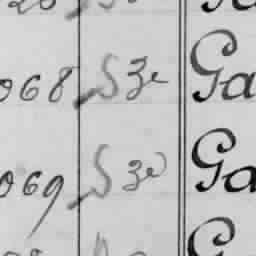 068 S 3e Ga
069 S 3e Ga